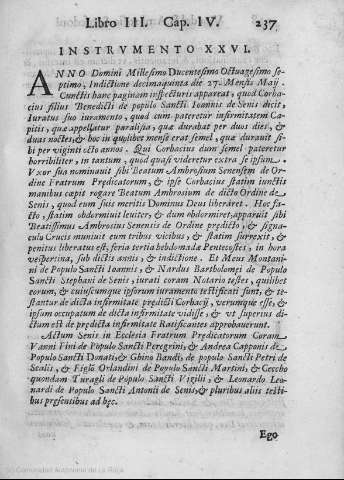 Libro III. Cap. IV. 237
INSTRVMENTO XXVI.
ANNO Domini Millesimo Ducentesimo Octuagesimo se-
ptimo, Indictione decimaquinta die 27. Mensis Maij.
Cunctis hanc paginam inspecturis appareat, quod Corba-
cius filius Benedicti de populo Sancti Ioannis de Senis dicit,
iuratus suo iuramento, quod cum pateretur infirmitatem Ca-
pitis, quæ appellatur paralisia, quæ durabat per duos dies, &
duas noctes, & hoc in quolibet mense erat semel quæ durauit si-
bi per viginti octo annos. Qui Corbacius dum semel pateretur
horribiliter, in tantum, quod quasi videretur extra se ipsum.
Vxor sua nominauit sibi Beatum Ambrosium Senensem de Or-
dine Fratrum Predicatorum, & ipse Corbacius statim iunctis
manibus cœpit rogare Beatum Ambrosium de dicto Ordine de
Senis, quod eum suis meritis Dominus Deus liberaret. Hoc fac-
to, statim obdormiuit leuiter, & dum obdormiret, apparuit sibi
Beatissimus Ambrosius Senensis de Ordine predicto, & signa-
culo Crucis muniuit eum tribus vicibus, & statim surrexit, &
penitus liberatus est, feria tertia hebdomadæ Pentecostes, in hora
vespertina, sub dictis annis, & indictione. Et Meus Montani-
ni de Populo Sancti Ioannis, & Nardus Bartholomei de Populo
Sancti Stephani de Senis, iurati coram Notario testes, quilibet
eorum, & cuiuscunque ipsorum iuramento testificati sunt, & te-
stantur de dicta infirmitate predicti Corbacij, verumque esse, &
ipsum occupatum de dicta infirmitate vidisse, & vt superius di-
ctum est de predicta infirmitate Ratificantes approbauerunt.
Actum Senis in Ecclesia Fratrum Predicatorum Coram
Vanni Fini de Populo Sancti Peregrini, & Andrea Capponis de
Populo Sancti Donati, & Ghino Bandi, de populo Sancti Petri de
Scalis, & Figlo Orlandini de Populo Sancti Martini, & Ceccho
quondam Turagli de Populo Sancti Vigilii, & Leonardo Leo-
nardi de Populo Sancti Antonii de Senis, & pluribus aliis testi-
bus presentibus ad hęc.
Ego
Comunidad Autónoma de La Rioja